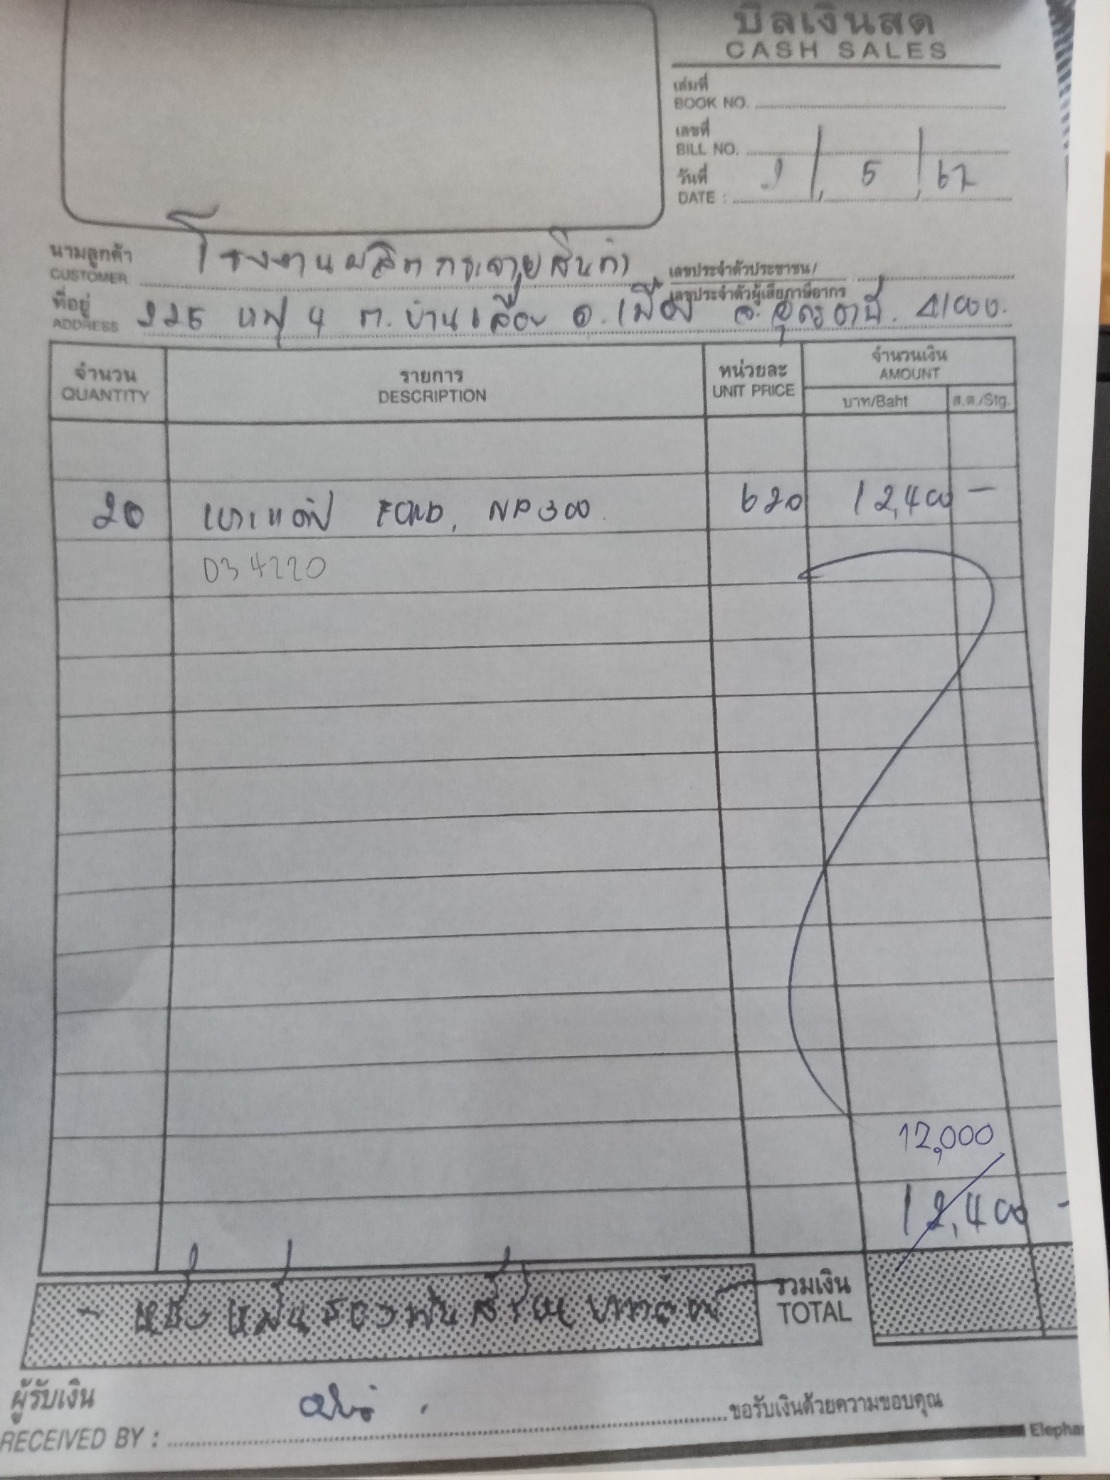 บิลเงินสด
CASH SALES
เล่มที่
BOOK NO.
เลขที่
BILL NO.
วันที่
DATE : 9 / 5 / 67
นามลูกค้า โรงงานผลิตกระจายสินค้า เลขประจำตัวประชาชน/
CUSTOMER เลขประจำตัวผู้เสียภาษีอากร
ที่อยู่ 225 หมู่ 4 ต. บ้านเลื่อม อ. เมือง จ. อุดรธานี. 41000.
ADDRESS
จำนวน รายการ หน่วยละ จำนวนเงิน
QUANTITY DESCRIPTION UNIT PRICE AMOUNT
บาท/Baht ส.ต./Stg.
20 FOND, NP300 620 12,400 -
D34220
12,000
12,400 -
- หนึ่งหมื่นสองพันสี่ร้อยบาทถ้วน - รวมเงิน
TOTAL
ผู้รับเงิน
RECEIVED BY : ขอรับเงินด้วยความขอบคุณ